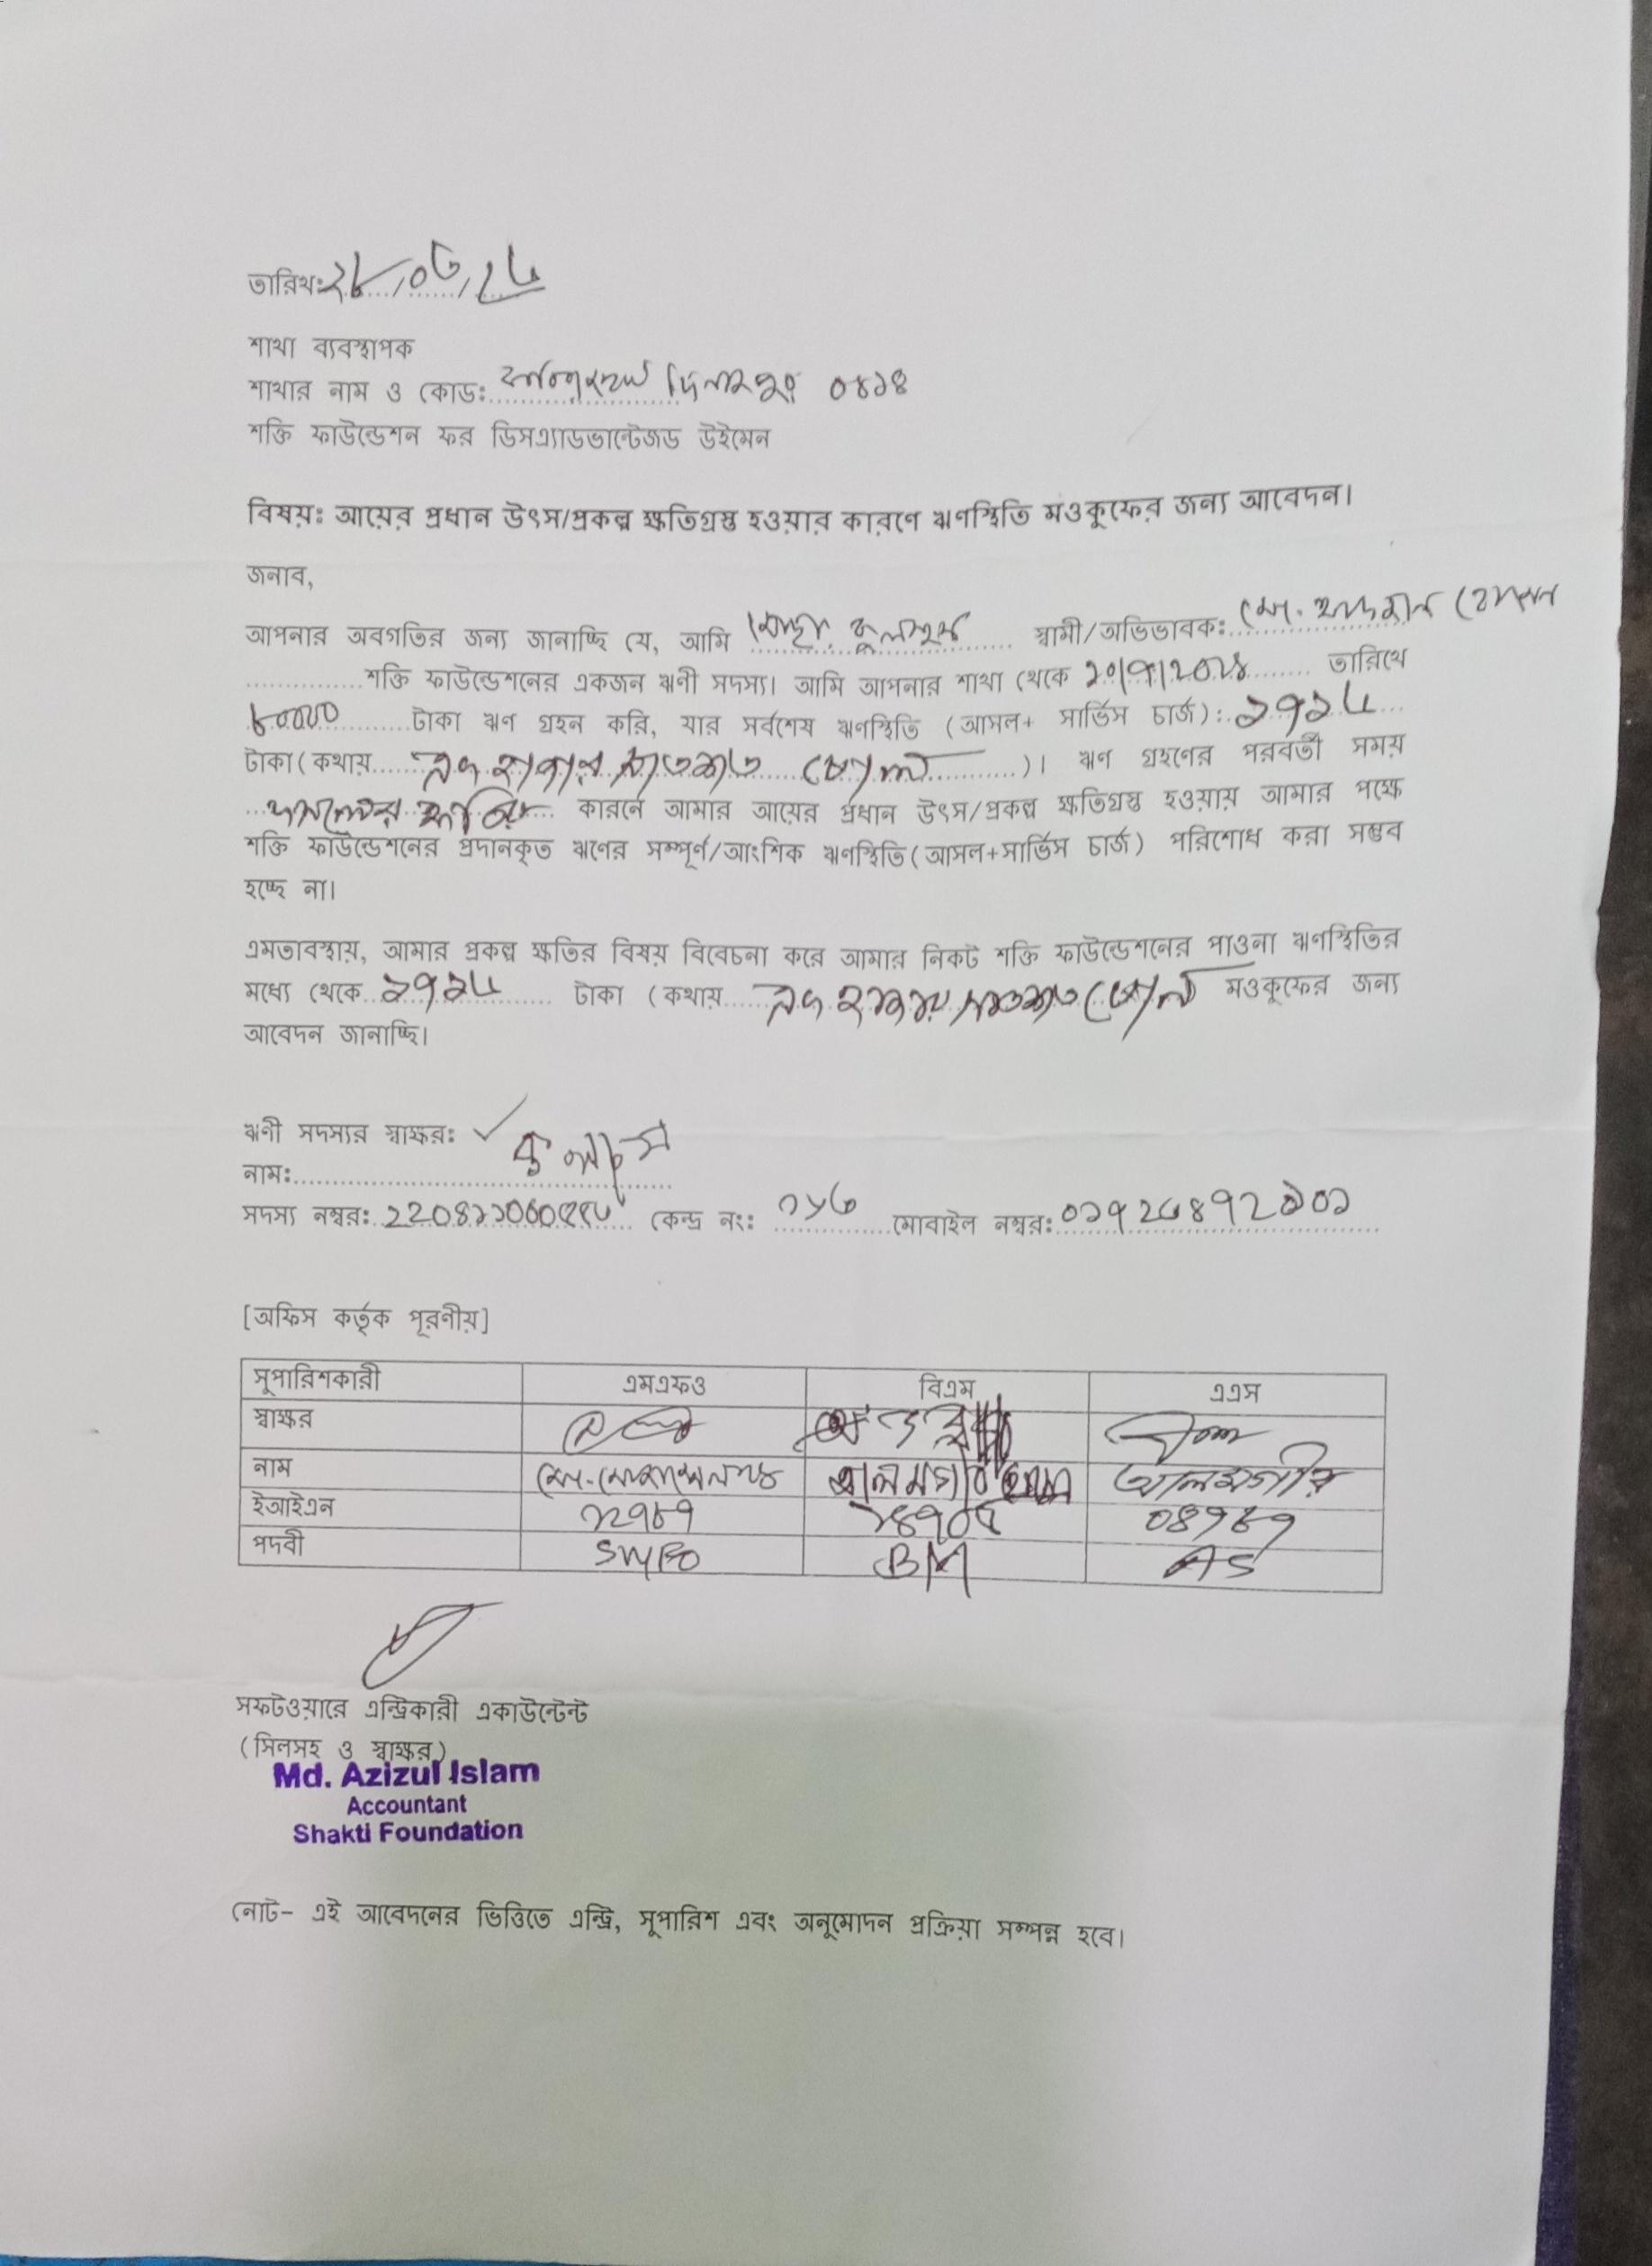 তারিখঃ ২৮/০৩/২৬
শাখা ব্যবস্থাপক
শাখার নাম ও কোডঃ দিনাজপুর ০৪১৪
শক্তি ফাউন্ডেশন ফর ডিসএ্যাডভান্টেজড উইমেন
বিষয়ঃ আয়ের প্রধান উৎস/প্রকল্প ক্ষতিগ্রস্ত হওয়ার কারণে ঋণস্থিতি মওকুফের জন্য আবেদন।
জনাব,
আপনার অবগতির জন্য জানাচ্ছি যে, আমি মোছাঃ স্বামী/অভিভাবকঃ মোঃ হোসেন
শক্তি ফাউন্ডেশনের একজন ঋণী সদস্য। আমি আপনার শাখা থেকে তারিখে
৮০০০০ টাকা ঋণ গ্রহন করি, যার সর্বশেষ ঋণস্থিতি (আসল+ সার্ভিস চার্জ):. ১৭১৬
টাকা(কথায় এক হাজার সাতশত ষোল )। ঋণ গ্রহণের পরবর্তী সময়
কারনে আমার আয়ের প্রধান উৎস/প্রকল্প ক্ষতিগ্রস্ত হওয়ায় আমার পক্ষে
শক্তি ফাউন্ডেশনের প্রদানকৃত ঋণের সম্পূর্ণ/আংশিক ঋণস্থিতি(আসল+সার্ভিস চার্জ) পরিশোধ করা সম্ভব
হচ্ছে না।
এমতাবস্থায়, আমার প্রকল্প ক্ষতির বিষয় বিবেচনা করে আমার নিকট শক্তি ফাউন্ডেশনের পাওনা ঋণস্থিতির
মধ্যে থেকে ১৭১৬ টাকা (কথায় এক হাজার সাতশত ষোল মওকুফের জন্য
আবেদন জানাচ্ছি।
ঋণী সদস্যর স্বাক্ষরঃ
নামঃ
সদস্য নম্বরঃ কেন্দ্র নং: মোবাইল নম্বরঃ
[অফিস কর্তৃক পূরণীয়]
সুপারিশকারী এমএফও বিএম এএস
স্বাক্ষর
নাম আলমগীর
ইআইএন ১২৭৮৭ ০৪৭৮৭
পদবী BM AS
সফটওয়ারে এন্ট্রিকারী একাউন্টেন্ট
(সিলসহ ও স্বাক্ষর)
Md. Azizul Islam
Accountant
Shakti Foundation
নোট- এই আবেদনের ভিত্তিতে এন্ট্রি, সুপারিশ এবং অনুমোদন প্রক্রিয়া সম্পন্ন হবে।